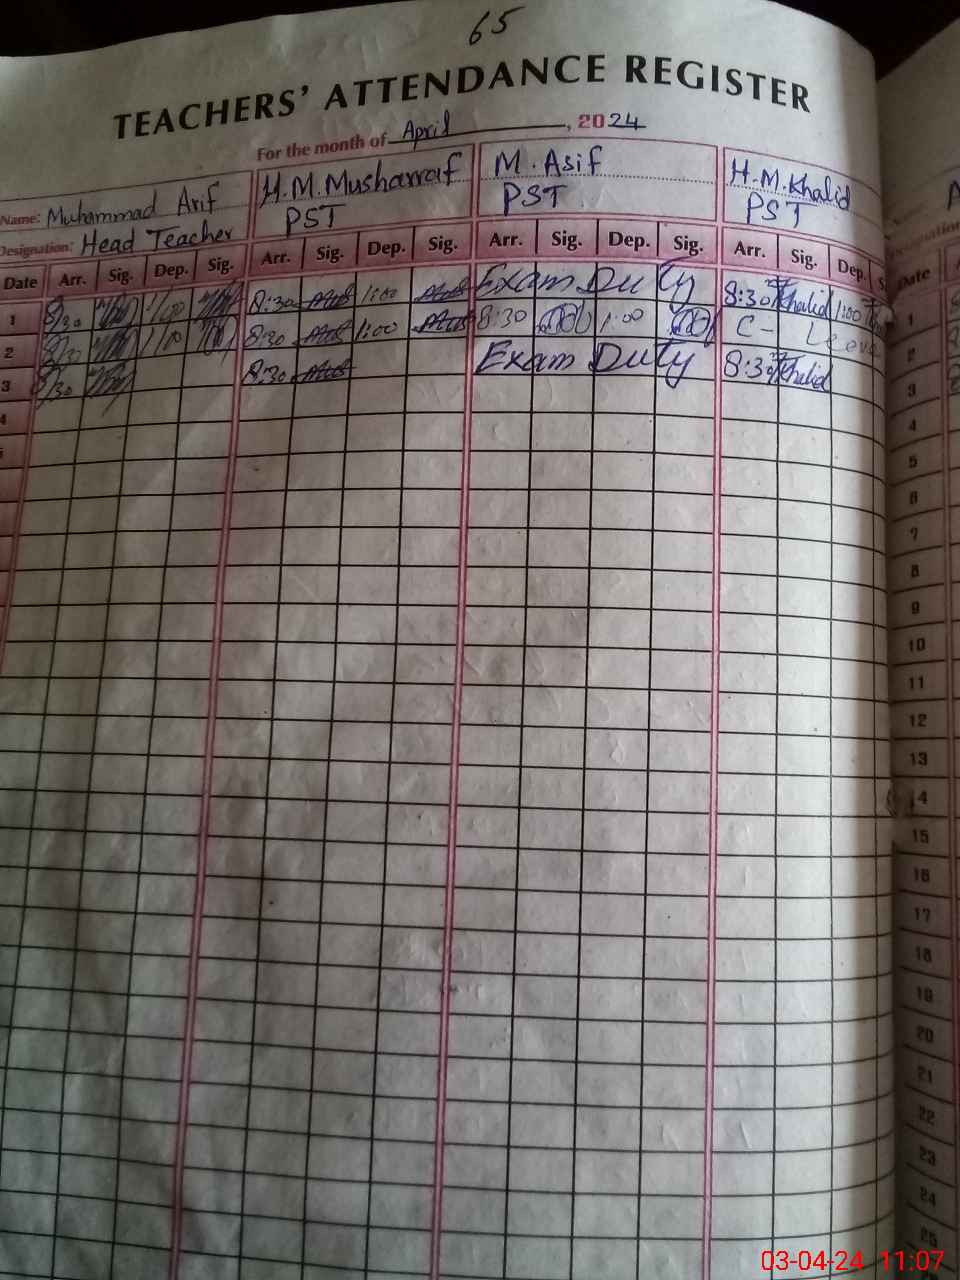 65
TEACHERS' ATTENDANCE REGISTER
For the month of April, 2024
Name: Muhammad Arif H.M.Musharraf M. Asif H.M.Khalid
Designation: Head Teacher PST PST PST
Date Arr. Sig. Dep. Sig. Arr. Sig. Dep. Sig. Arr. Sig. Dep. Sig. Arr. Sig. Dep. Date
1 8/30 1/00 8:30 1:00 Exam Duty 8:30 Khalid 1:00 1
2 8/30 1/00 8:30 1:00 8:30 1:00 C- Leave 2
3 8/30 8:30 Exam Duty 8:30 Khalid 3
4 4
5
6
7
8
9
10
11
12
13
14
15
16
17
18
19
20
21
22
23
24
25
03-04-24 11:07